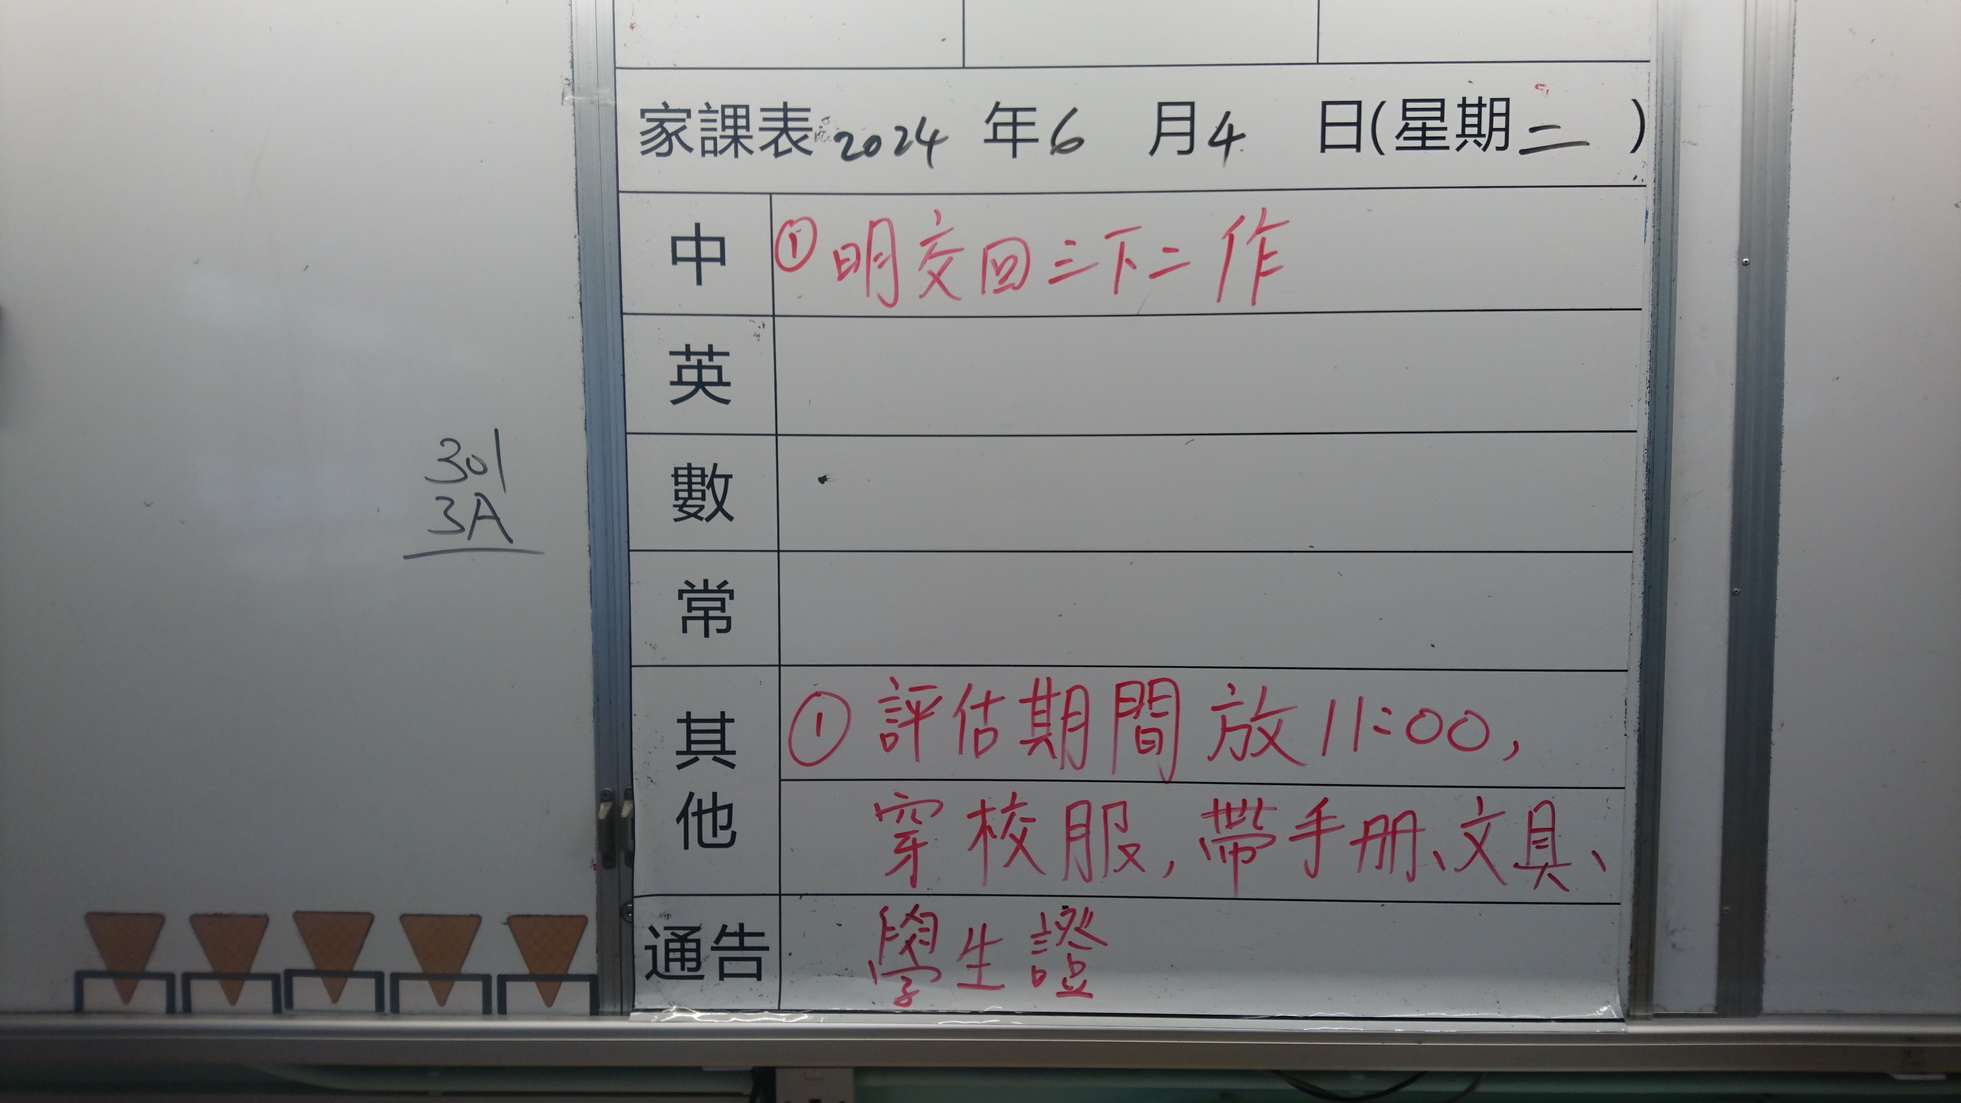 家課表 2024 年 6 月 4 日(星期二)
中 ①明交回三下二作
英
數
常
其他 ①評估期間放11:00,
穿校服,帶手册、文具、
通告 學生證
301
3A